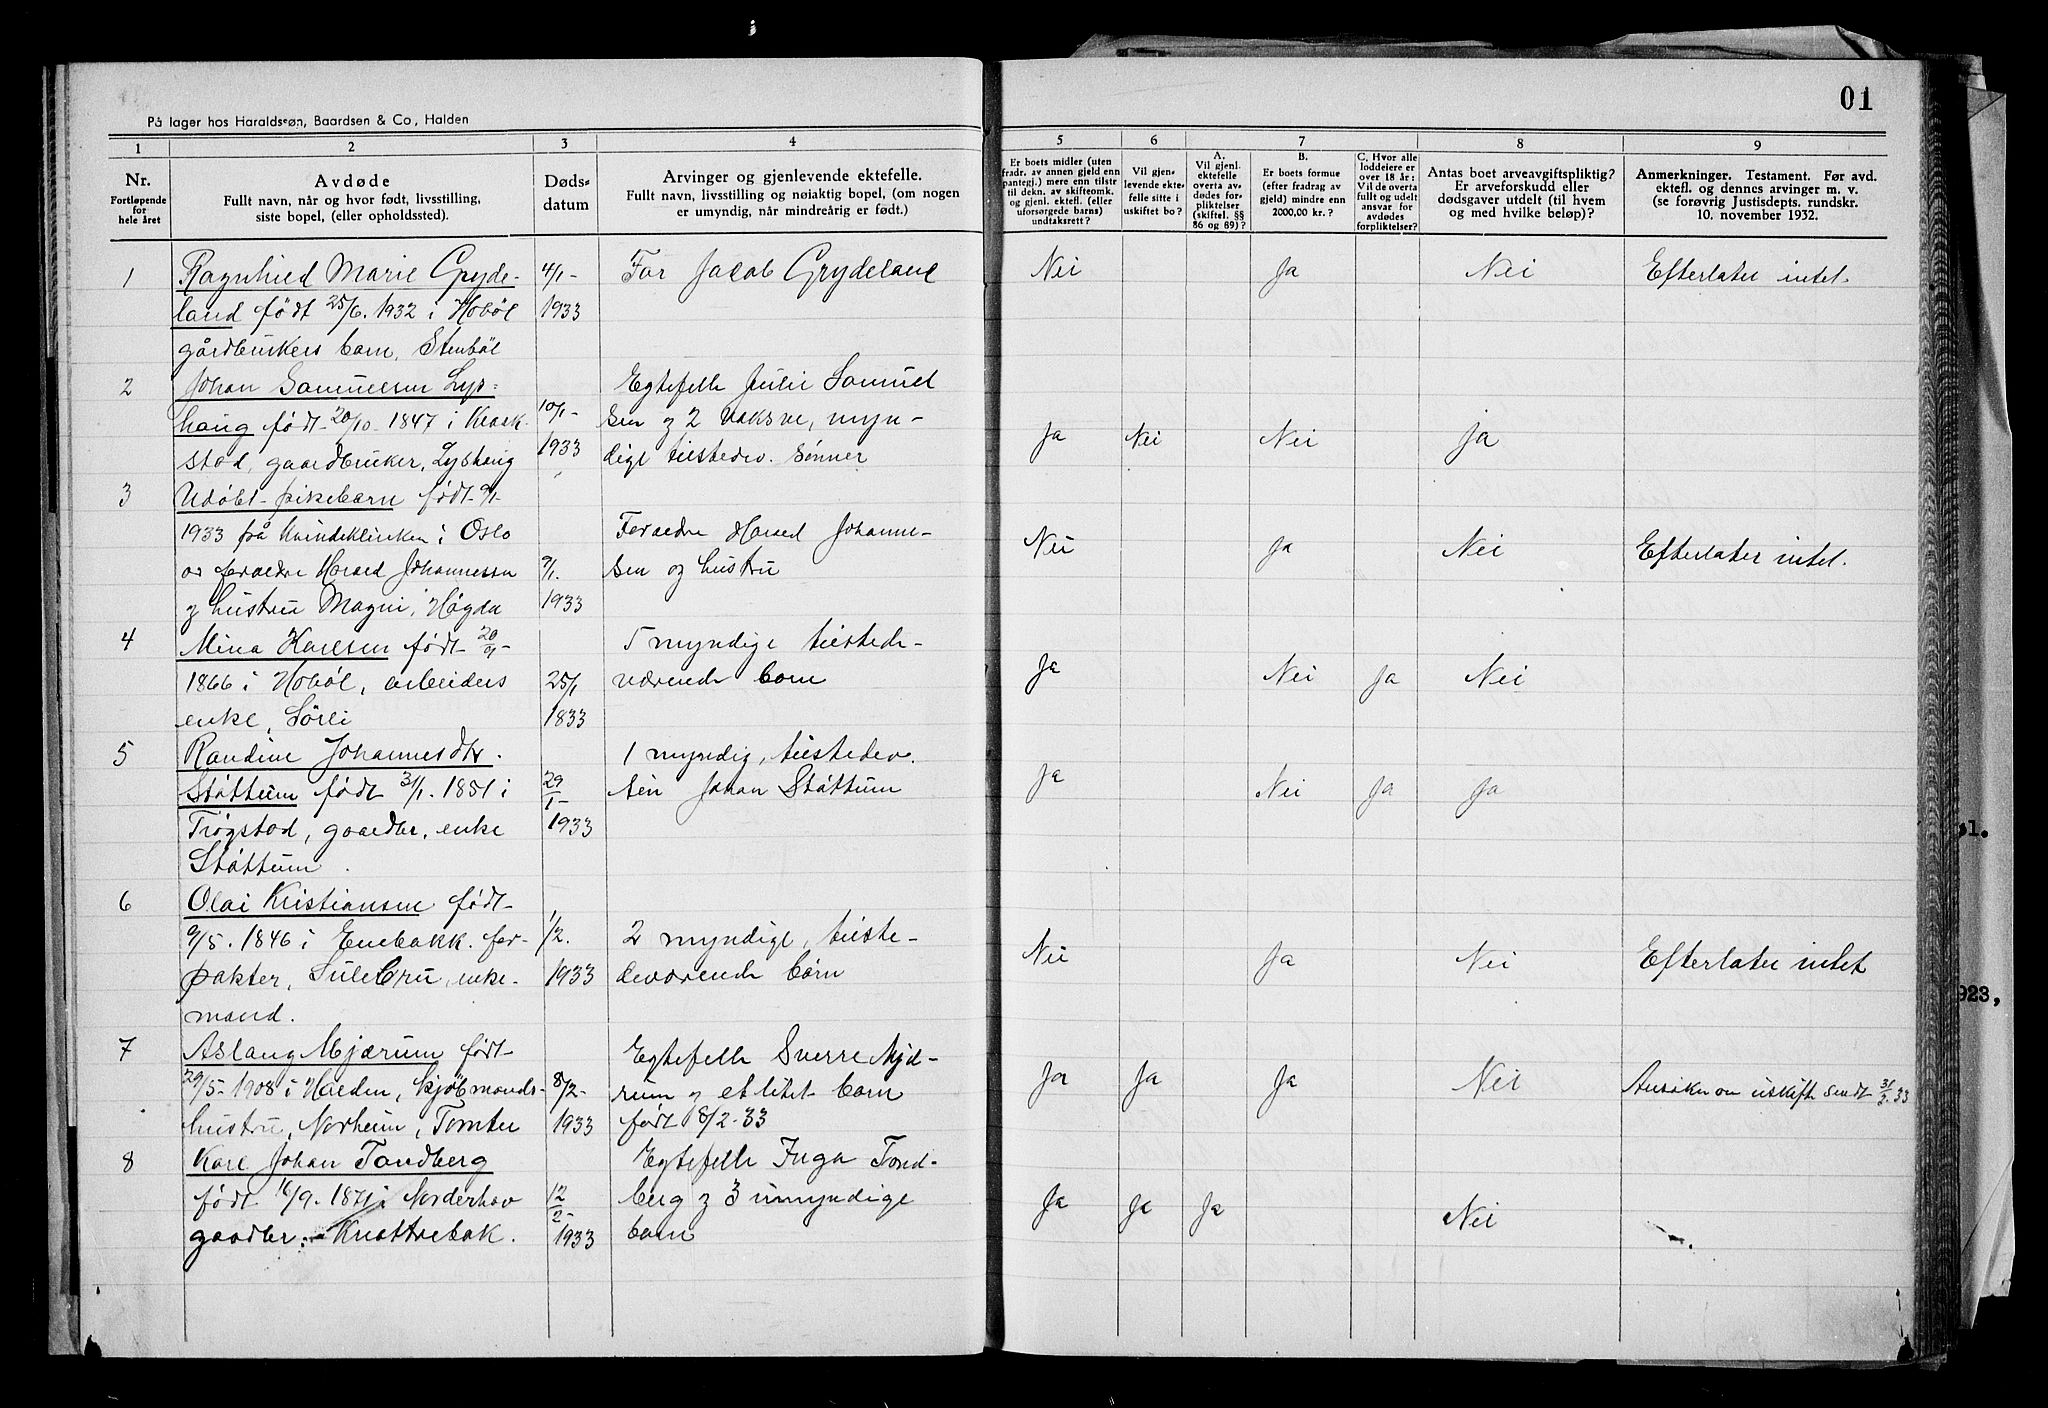 01
På lager hos Haraldssøn, Baardsen & Co, Halden
1 2 3 4 5 6 7 8 9
Nr.
Fortløpende
for
hele året
Avdøde
Fullt navn, når og hvor født, livsstilling,
siste bopel, (eller opholdssted).
Døds-
datum
Arvinger og gjenlevende ektefelle.
Fullt navn, livsstilling og nøiaktig bopel, (om nogen
er umyndig, når mindreårig er født.)
Er boets midler (uten
fradr. av annen gjeld enn
pantegj.) mere enn tilstr
til dekn. av skifteomk.
og gjenl. ektefl. (eller
uforsørgede barns)
undtaksrett?
Vil gjen-
levende ekte-
felle sitte i
uskiftet bo?
A.
Vil gjenl.
ektefelle
overta av-
dødes for-
pliktelser
(skiftel. §§
86 og 89)?
B.
Er boets formue
(efter fradrag av
gjeld) mindre enn
2000,00 kr.?
C. Hvor alle
loddeiere er
over 18 år:
Vil de overta
fullt og udelt
ansvar for
avdødes
forpliktelser?
Antas boet arveavgiftspliktig?
Er arveforskudd eller
dødsgaver utdelt (til hvem
og med hvilke beløp)?
Anmerkninger. Testament. Før avd.
ektefl. og dennes arvinger m. v.
(se forøvrig Justisdepts. rundskr.
10. november 1932.
1 Ragnhild Marie Gryde- 4/1- Far Jacob Grydeland Nei Ja Nei Efterlater intet.
land født 25/6. 1932 i Hobøl 1933
gårdbrukers barn, Stenbøl
2 Johan Samuelsen Lys- Egtefelle Julie Samuel
haug født 20/10- 1847 i Kraak- 10/1- sen og 2 voksne, myn-
stad, gaardbruker, Lyshaug 1933 dige tilstedev. sønner Ja Nei Nei Ja
3 Udøbt pikebarn født 9/1-
1933 på kvindeklinken i Oslo Forældre Harald Johanne- Nei Ja Nei Efterlater intet.
av forældre Harald Johannessen 9/1. sen og hustru
og hustru Magni, Høgda 1933
4 Mina Karlsen født 20/ 5 myndige tilstede-
1866 i Hobøl, arbeiders 25/1 værende barn Ja Nei Ja Nei
enke, Sørli 1833
5 Randine Johannesdtr. 1 myndig, tilstedev.
Støttum født 31/1. 1851 i 29/1- søn Johan Støttum Ja Nei Ja Ja
Trøgstad, gaardbr. enke 1933
Støttum.
6 Olai Kristiansen født
9/5. 1846 i Enebakk. for- 1/2. 2 myndige, tilste- Nei Ja Nei Efterlater intet
pakter, Sulebru, enke- 1933 deværende børn
mand.
7 Aslaug Mjærum født Egtefelle Sverre Mjæ-
29/5- 1908 i Halden, kjøbmands- 8/2- rum og et litet barn Ja Ja Ja Nei Ansøkn om uskifte sendt 31/3.33
hustru, Norheim, Tomter 1933 født 8/2-33
8 Karl Johan Tandberg Egtefelle Inga Tand-
født 16/9. 1871 i Norderhov 12/2- berg og 3 umyndige Ja Ja Ja Nei
gaardbr. Knattrebak. 1933 barn
1.
923,